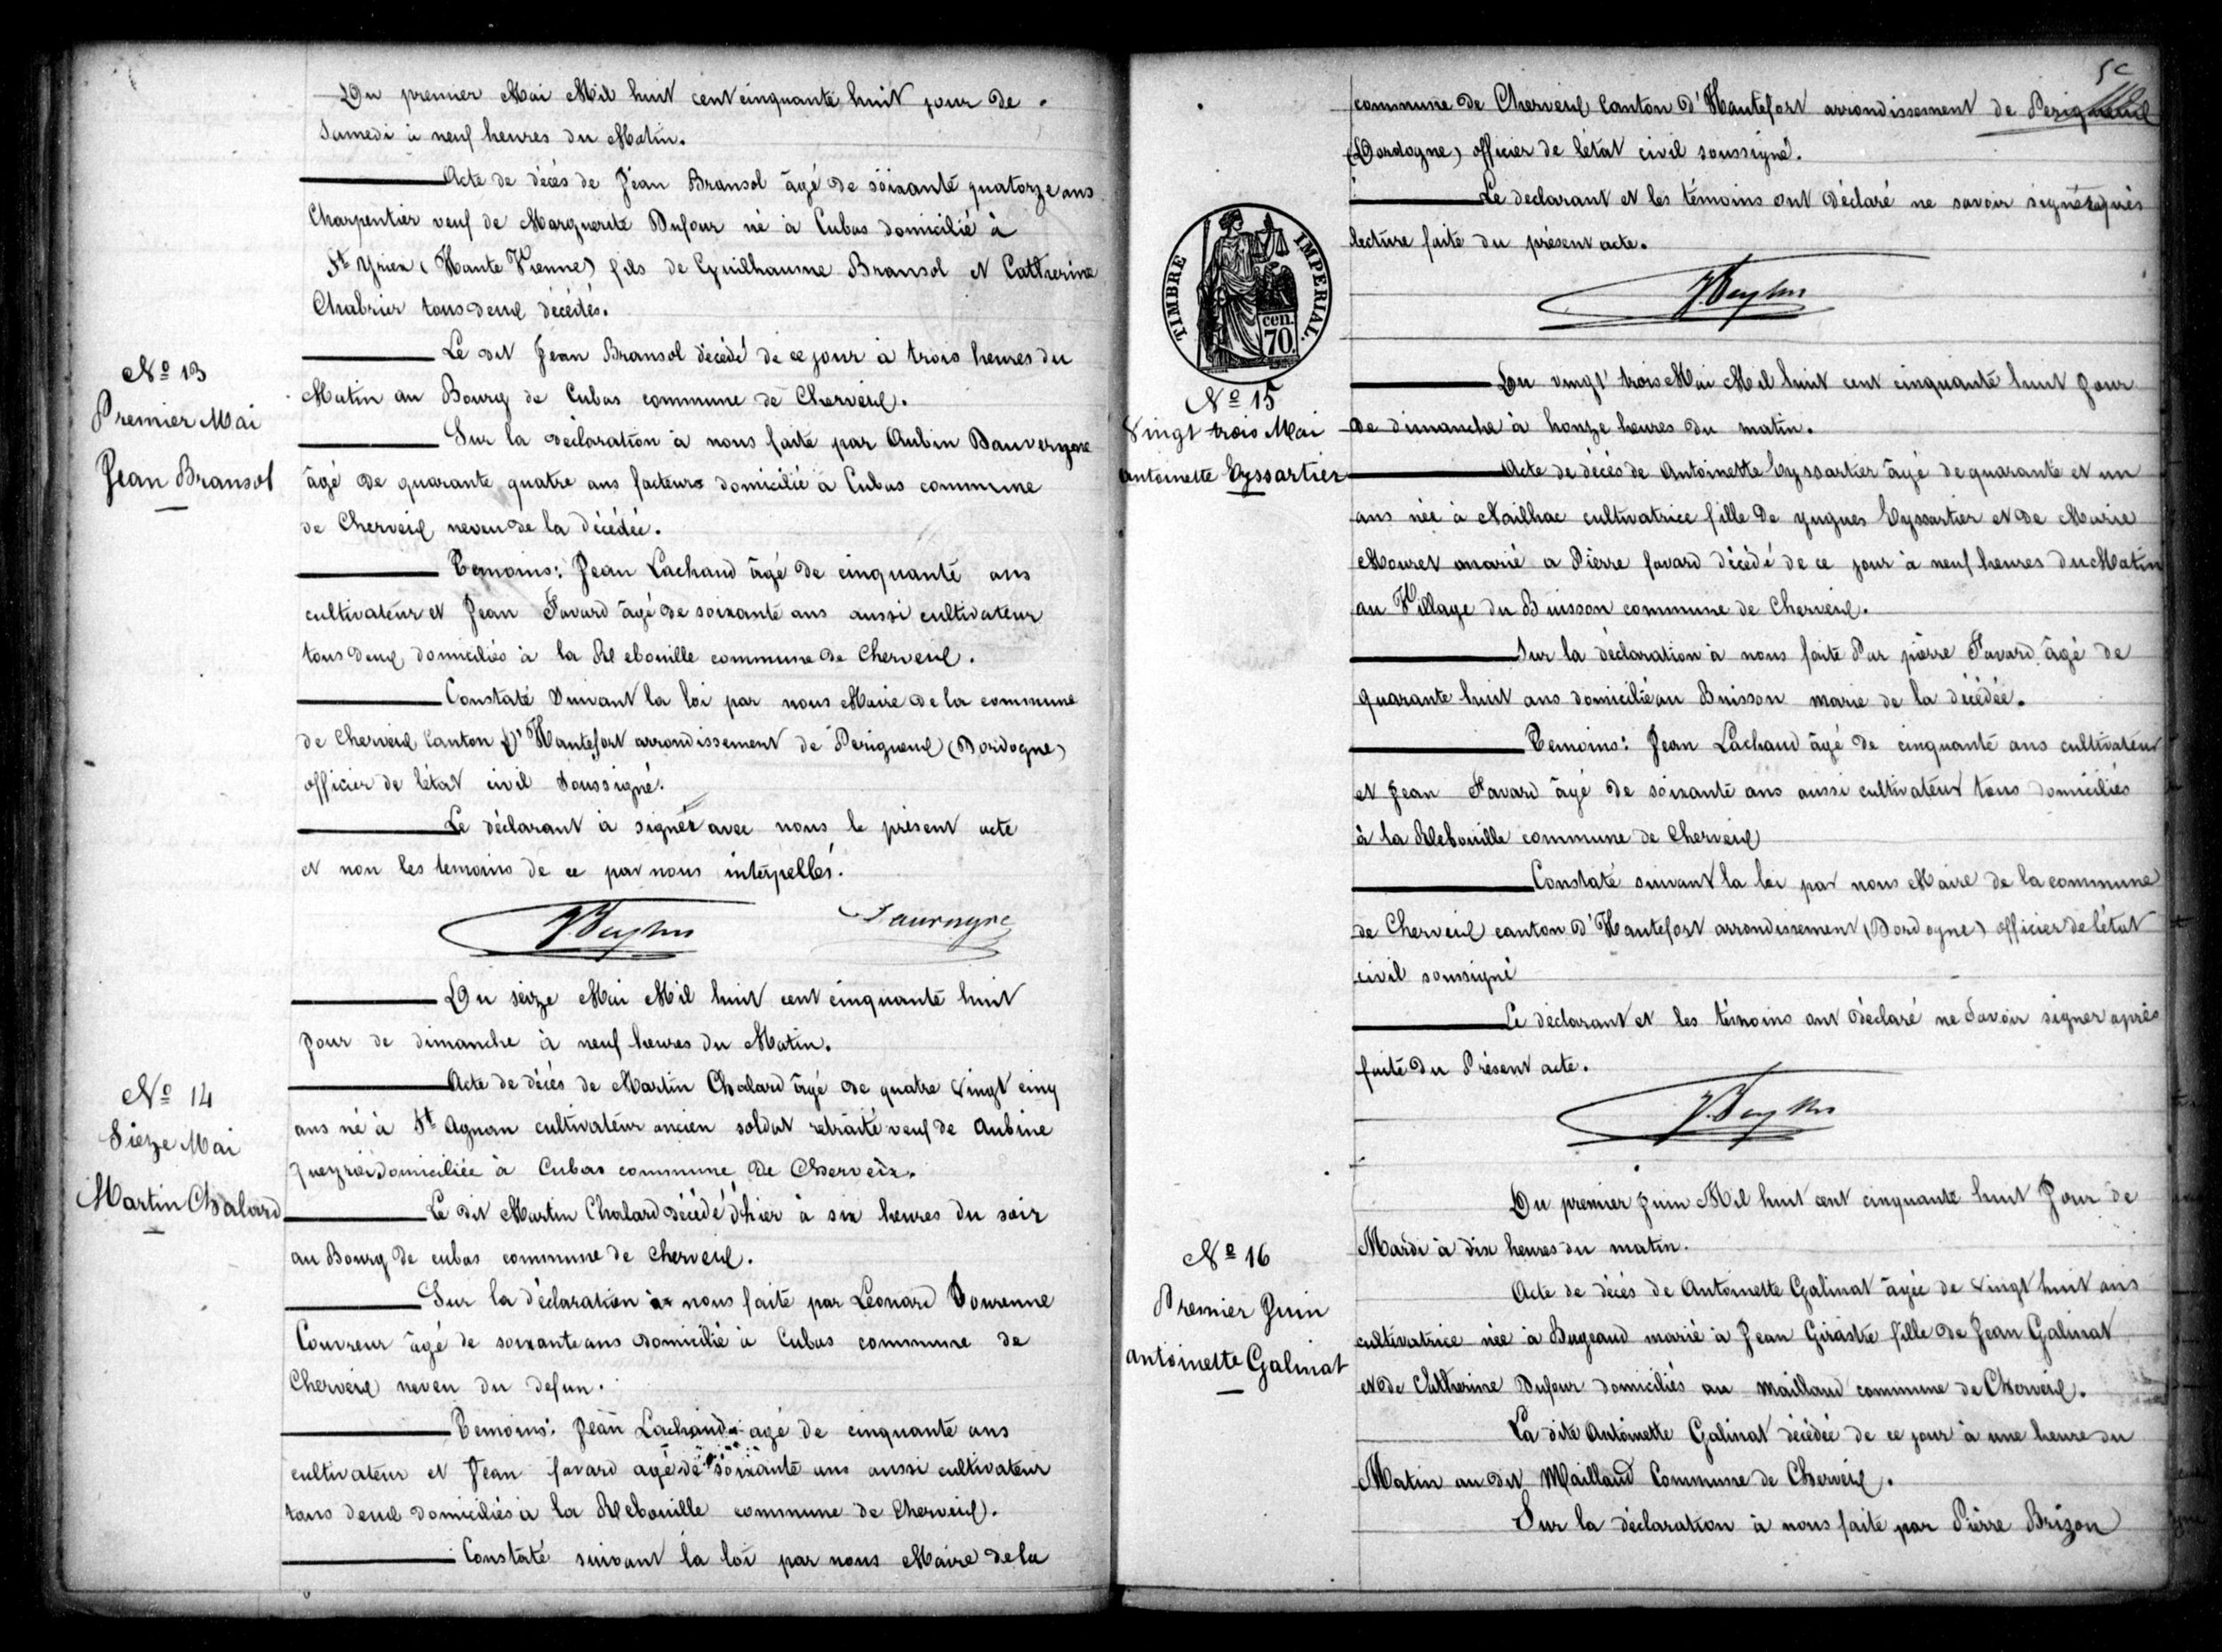 Du premier Mai Mil huit cent cinquante huit jour de
Samedi à neuf heures du Matin.
Acte de décès de Jean Bransol âgé de soixante quatorze ans
Charpentier veuf de Marguerite Dufour né à Cubas domicilié à
St Yriex (Haute Vienne) fils de Guilhaume Bransol et Catherine
Chabrier tous deux décédés.
Le dit Jean Bransol décédé de ce jour à trois heures du
Matin au Bourg de Cubas commune de Cherveix.
Sur la déclaration à nous faite par Aubin Dauvergne
âgé de quarante quatre ans facteur domicilié à Cubas commune
de Cherveix neveu de la décédée.
Temoins: Jean Lachaud âgé de cinquante ans
cultivateur et Jean Favard âgé de soixante ans aussi cultivateur
tous deux domiciliés à la Rebouille commune de Cherveix.
Constaté Suivant la loi par nous Maire de la commune
de Cherveix Canton d'Hautefort arrondissement de Perigueux (Dordogne)
officier de létat civil Soussigné.
Le déclarant à signé avec nous le présent acte
et non les temoins de ce par nous interpellés.
Dauvergne
Nº 13
Premier Mai
Jean Bransol
Du seize Mai Mil huit cent cinquante huit
Jour de dimanche à neuf heures du Matin.
Acte de décès de Martin Chalard âgé de quatre vingt cinq
ans né à St Agnan cultivateur ancien soldat retraité veuf de Aubine
domiciliée à Cubas commune de Cherveix.
Le dit Martin Chalard décédé d'hier à six heures du soir
au Bourg de cubas commune de cherveix.
Sur la déclaration à nous faite par Léonard Dourenne
Couvreur âgé de soixante ans domicilié à Cubas commune de
Cherveix neveu du defun.
Temoins: Jean Lachaud agé de cinquante ans
cultivateur et Jean favard agé de soixante ans aussi cultivateur
tous deux domiciliés à la Rebouille commune de Cherveix.
Constaté suivant la loi par nous Maire de la
Nº 14
Sieze Mai
Martin Chalard
commune de Cherveix Canton d'Hautefort arriondissement de Perigueux
(Dordogne) officier de létat civil soussigné.
Le declarant et les témoins ont déclaré ne savoir signé après
lecture faite du présent acte.
TIMBRE IMPERIAL.
cen.
70.
Nº 15
Vingt trois Mai
Antoinette Eyssartier
Du vingt trois Mai Mil huit cent cinquante huit jour
de dimanche à honze heures du matin.
Acte de décés de Antoinette Eyssartier âgé de quarante et un
ans née à Nailhac cultivatrice fille de yugues Eyssartier et de Marie
Mouret marié a Pierre favard décédé de ce jour à neuf heures du Matin
au Village du Buisson commune de Cherveix.
Sur la déclaration à nous faite Par pierre Favard âgé de
quarante huit ans domicilié au Buisson marie de la décédée.
Temoins: Jean Lachaud âgé de cinquante ans cultivateur
et Jean Favard âgé de soixante ans aussi cultivateur tous domiciliés
à la Rebouille commune de Cherveix
Constaté suivant la loi par nous Maire de la commune
de Cherveix canton d'Hautefort arrondissement (Dordogne) officier de létat
civil soussigné
Le déclarant et les témoins ont déclaré ne Savoir signer après
faite du Présent acte.
Du premier juin Mil huit cent cinquante huit Jour de
Mardi à dix heures du matin.
Acte de décés de Antoinette Galinat âgée de vingt huit ans
cultivatrice née à Bugeaud marié à Jean Girastre fille de Jean Galinat
et de Catherine Dufour domiciliés au Maillaud commune de Cherveix.
La dite Antoinette Galinat décédée de ce jour à une heure du
Matin au dit Maillaud Commune de Cherveix.
Sur la déclaration à nous faite par Pierre Brizon
Nº 16
Premier Juin
antoinette Galinat